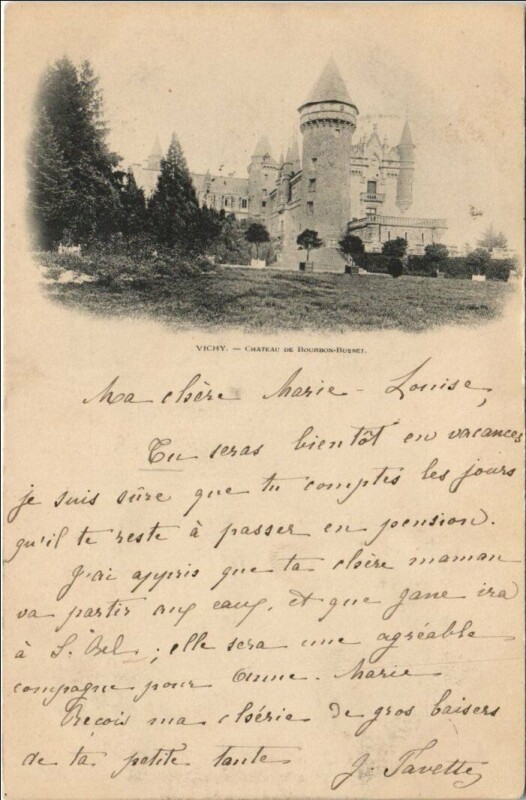 VICHY. — CHATEAU DE BOURBON-BUSSET.
Ma chère Marie-Louise,
Tu seras bientôt en vacances
je suis sûre que tu comptes les jours
qu'il te reste à passer en pension.
J'ai appris que ta chère maman
va partir aux eaux, et que Jane ira
à S. Bel ; elle sera une agréable
compagne pour Anne-Marie
Reçois ma chérie de gros baisers
de ta petite tante
J. Favette